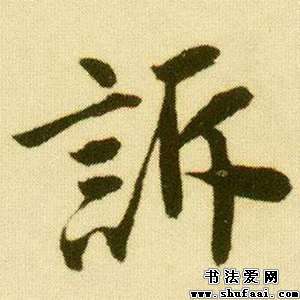 訴
书法爱网
www.shufaai.com